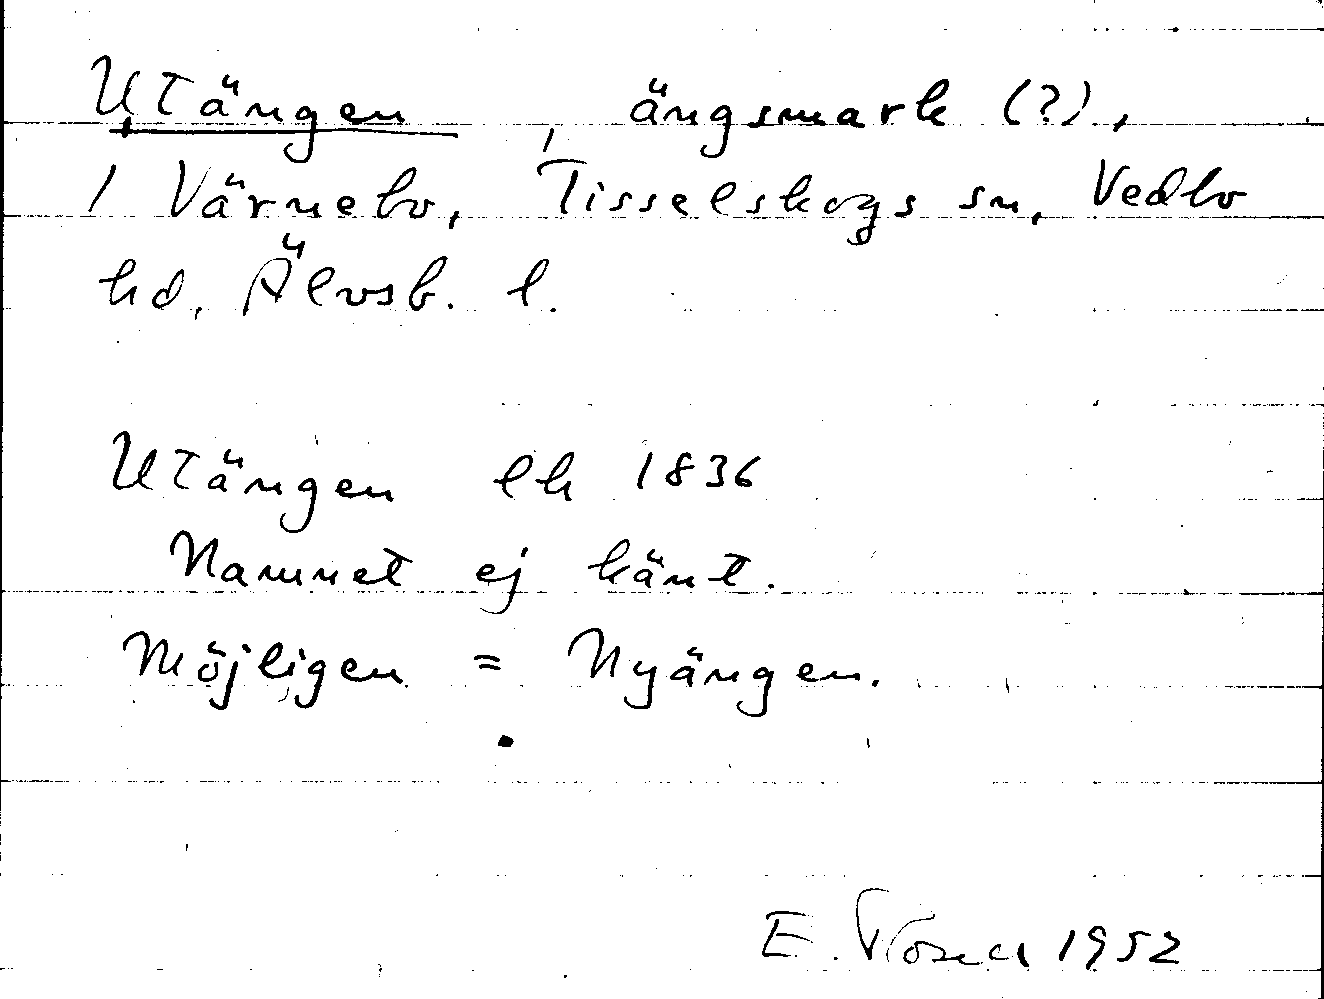 Utängen, ängsmark (?),
i Värnebo, Tisselskogs sn, Vedbo
hd, Älvsb. l.
Utängen lh 1836
Namnet ej känt.
Möjligen = Nyängen.
E. 1952